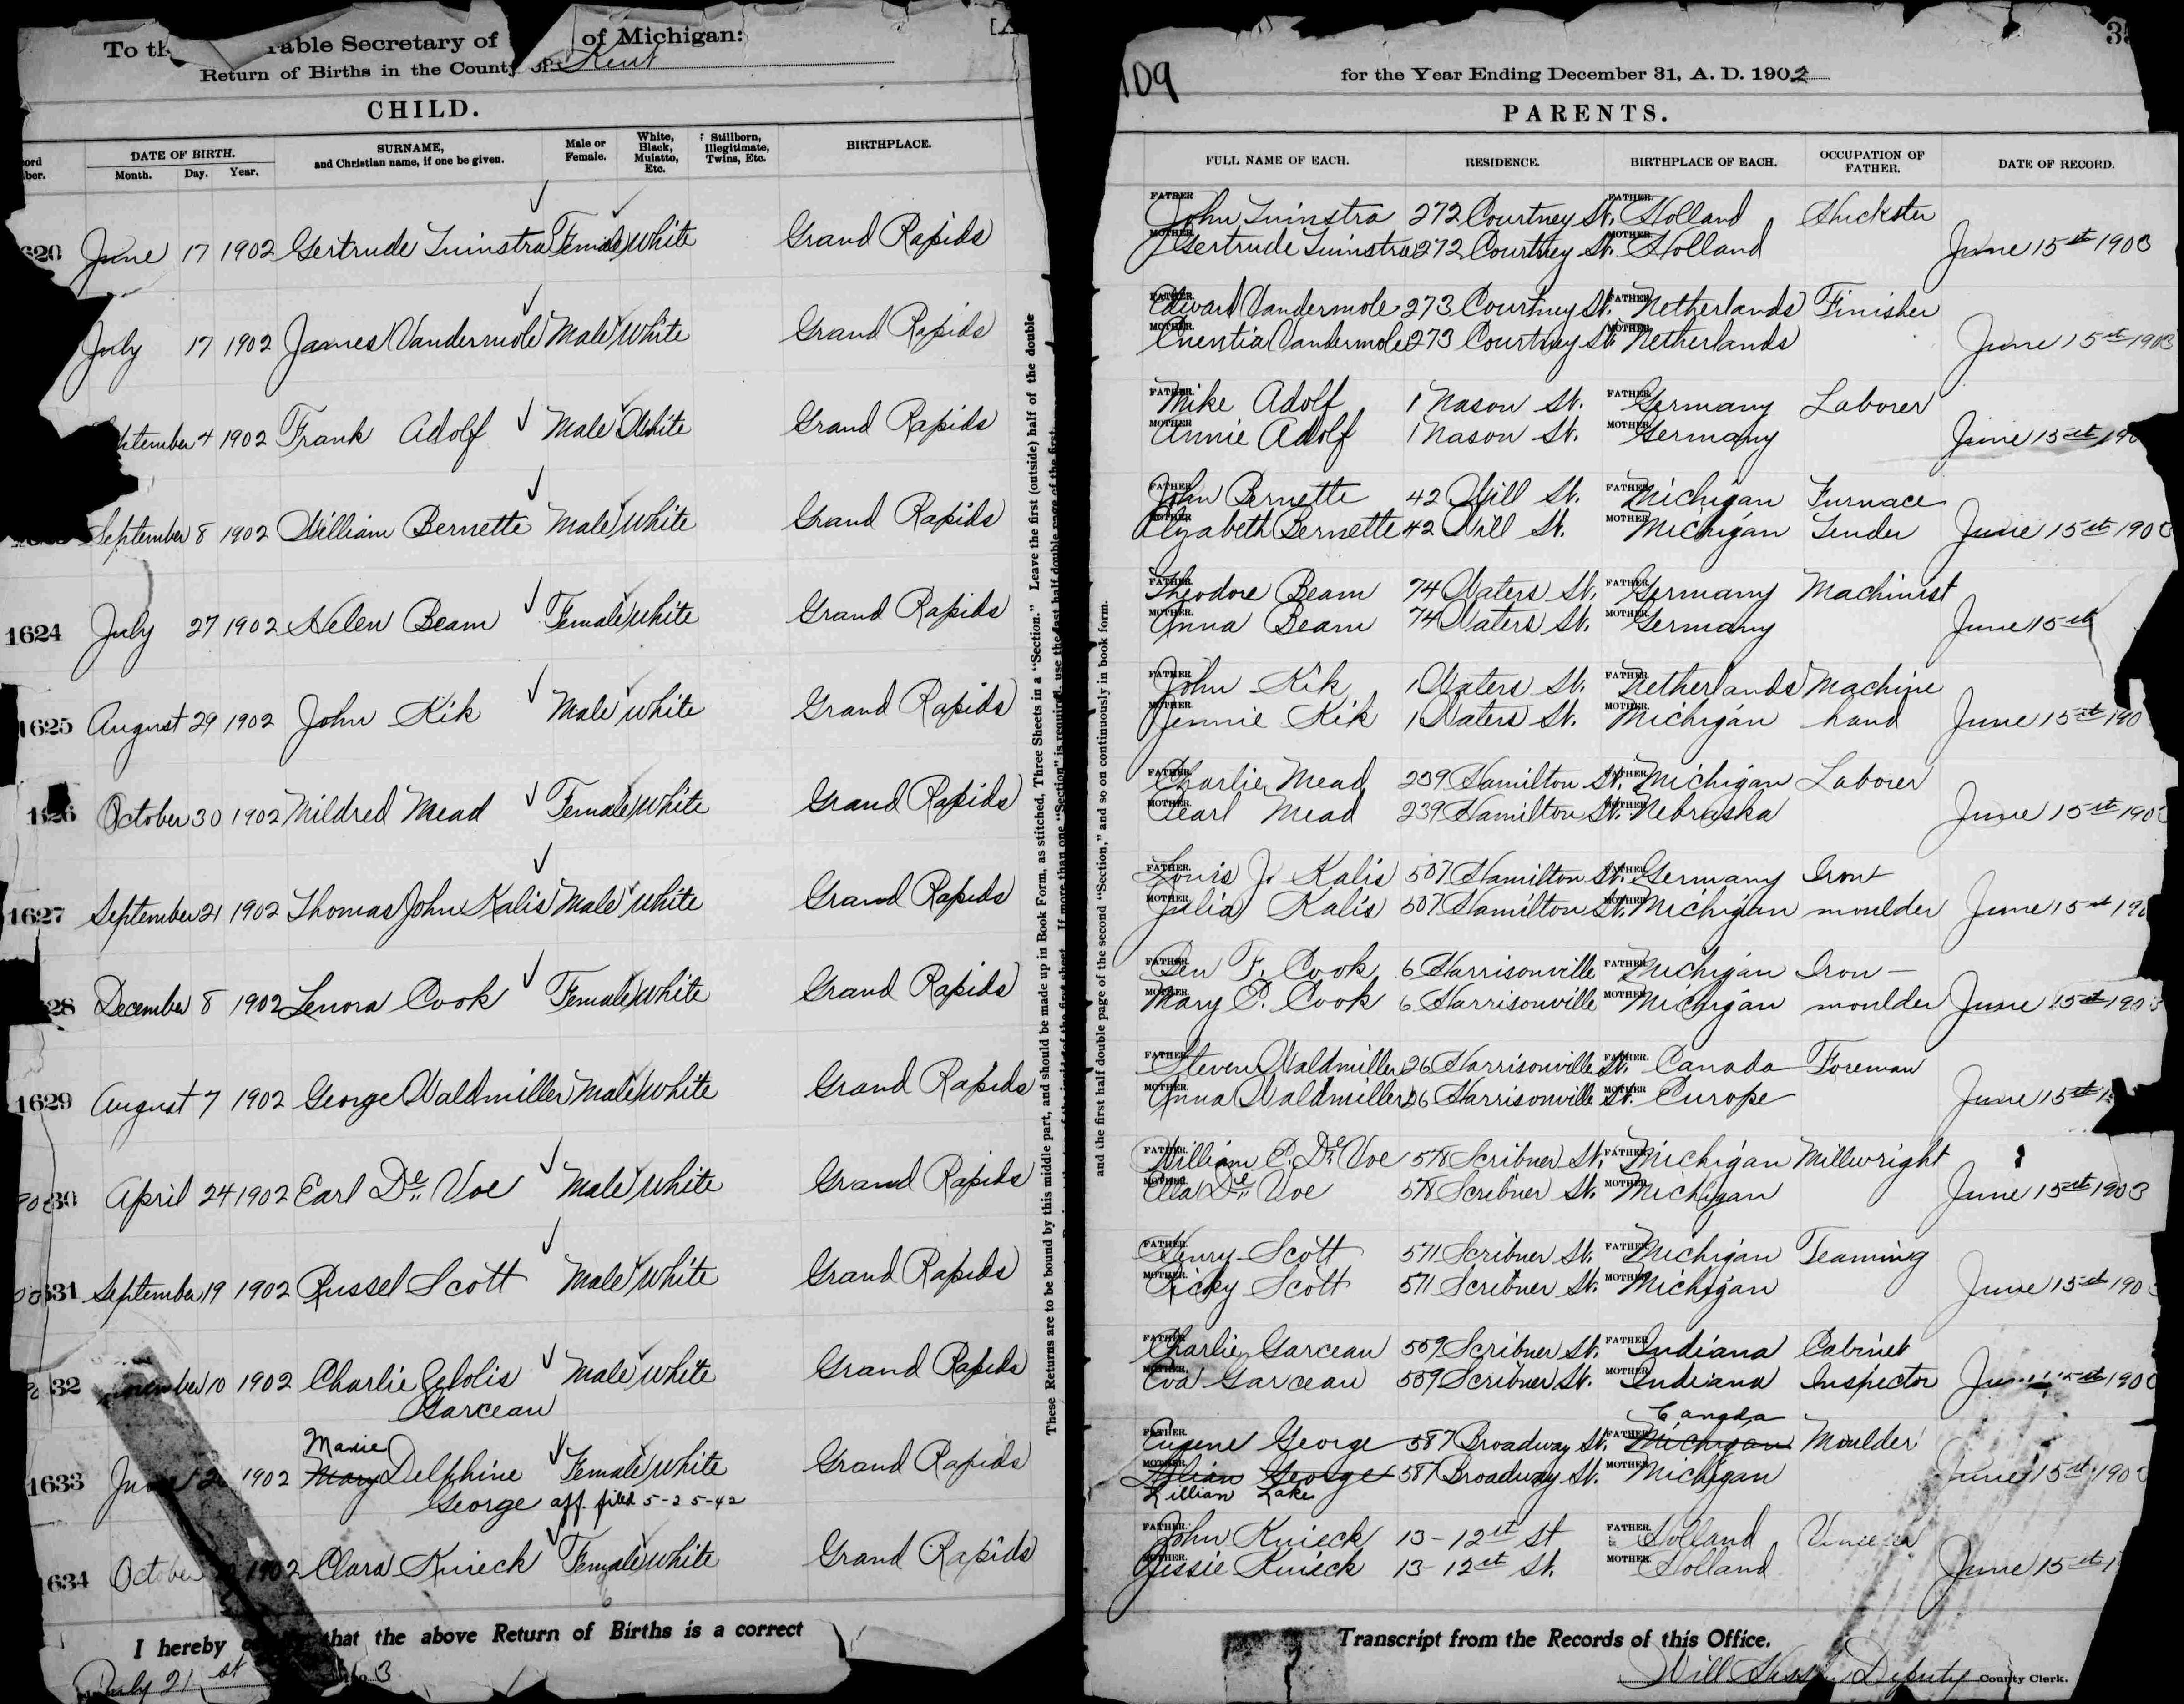 To th rable Secretary of of Michigan:
Return of Births in the County of Kent
CHILD.
DATE OF BIRTH.
Month. Day. Year.
SURNAME, and Christian name, if one be given.
Male or Female.
White, Black, Mulatto, Etc.
Stillborn, Illegitimate, Twins, Etc.
BIRTHPLACE.
620 June 17 1902 Gertrude Tuinstra Female White Grand Rapids
July 17 1902 James Vandermole Male White Grand Rapids
ptember 4 1902 Frank Adolf Male White Grand Rapids
September 8 1902 William Bernette Male White Grand Rapids
1624 July 27 1902 Helen Beam Female White Grand Rapids
1625 August 29 1902 John Kik Male White Grand Rapids
1626 October 30 1902 Mildred Mead Female White Grand Rapids
1627 September 21 1902 Thomas John Kalis Male White Grand Rapids
28 December 8 1902 Lenora Cook Female White Grand Rapids
1629 August 7 1902 George Waldmiller Male White Grand Rapids
30 April 24 1902 Earl De Voe Male White Grand Rapids
631 September 19 1902 Russel Scott Male White Grand Rapids
32 10 1902 Charlie Garceau Male White Grand Rapids
1633 1902 Marie Mary Delphine George Female White Grand Rapids
aff. filed 5-25-42
1634 October 1902 Clara Knieck Female White Grand Rapids
I hereby that the above Return of Births is a correct
July 21st 3
These Returns are to be bound by this middle part, and should be made up in Book Form, as stitched. Three Sheets in a "Section." Leave the first (outside) half of the double
and the first half double page of the second "Section," and so on continuously in book form.
109
for the Year Ending December 31, A. D. 1902
PARENTS.
FULL NAME OF EACH. RESIDENCE. BIRTHPLACE OF EACH. OCCUPATION OF FATHER. DATE OF RECORD.
FATHER. John Tuinstra 272 Courtney St. FATHER. Holland Huckster
MOTHER. Gertrude Tuinstra 272 Courtney St. MOTHER. Holland June 15st 1903
FATHER. Edward Vandermole 273 Courtney St. FATHER. Netherlands Finisher
MOTHER. Vandermole 273 Courtney St. MOTHER. Netherlands June 15st 1903
FATHER. Mike Adolf 1 Nason St. FATHER. Germany Laborer
MOTHER. Annie Adolf 1 Nason St. MOTHER. Germany June 15st 190
FATHER. John Bernette 42 Will St. FATHER. Michigan Furnace
MOTHER. Elizabeth Bernette 42 Will St. MOTHER. Michigan Tender June 15st 190
FATHER. Theodore Beam 74 Waters St. FATHER. Germany Machinist
MOTHER. Anna Beam 74 Waters St. MOTHER. Germany June 15st
FATHER. John Kik 1 Waters St. FATHER. Netherlands Machine
MOTHER. Jennie Kik 1 Waters St. MOTHER. Michigan hand June 15st 190
FATHER. Charlie Mead 239 Hamilton St. FATHER. Michigan Laborer
MOTHER. Pearl Mead 239 Hamilton St. MOTHER. Nebraska June 15st 190
FATHER. Louis J. Kalis 507 Hamilton St. FATHER. Germany Iron
MOTHER. Julia Kalis 507 Hamilton St. MOTHER. Michigan moulder June 15st 190
FATHER. Ben F. Cook 6 Harrisonville FATHER. Michigan Iron-
MOTHER. Mary P. Cook 6 Harrisonville MOTHER. Michigan moulder June 15st 1903
FATHER. Steven Waldmiller 26 Harrisonville St. FATHER. Canada Foreman
MOTHER. Anna Waldmiller 26 Harrisonville St. MOTHER. Europe June 15st 1
FATHER. William P. De Voe 578 Scribner St. FATHER. Michigan Millwright
MOTHER. Ella De Voe 578 Scribner St. MOTHER. Michigan June 15st 1903
FATHER. Henry Scott 571 Scribner St. FATHER. Michigan Teaming
MOTHER. Ricky Scott 571 Scribner St. MOTHER. Michigan June 15st 190
FATHER. Charlie Garceau 559 Scribner St. FATHER. Indiana Cabinet
MOTHER. Eva Garceau 559 Scribner St. MOTHER. Indiana Inspector 190
FATHER. Eugene George 587 Broadway St. FATHER. Canada Michigan Moulder
MOTHER. Lilian George 587 Broadway St. MOTHER. Michigan June 15st 190
Lillian Lake
FATHER. John Knieck 13-12st St FATHER. Holland
MOTHER. Jessie Knieck 13-12st St. MOTHER. Holland June 15st 1
Transcript from the Records of this Office.
Will Deputy County Clerk.